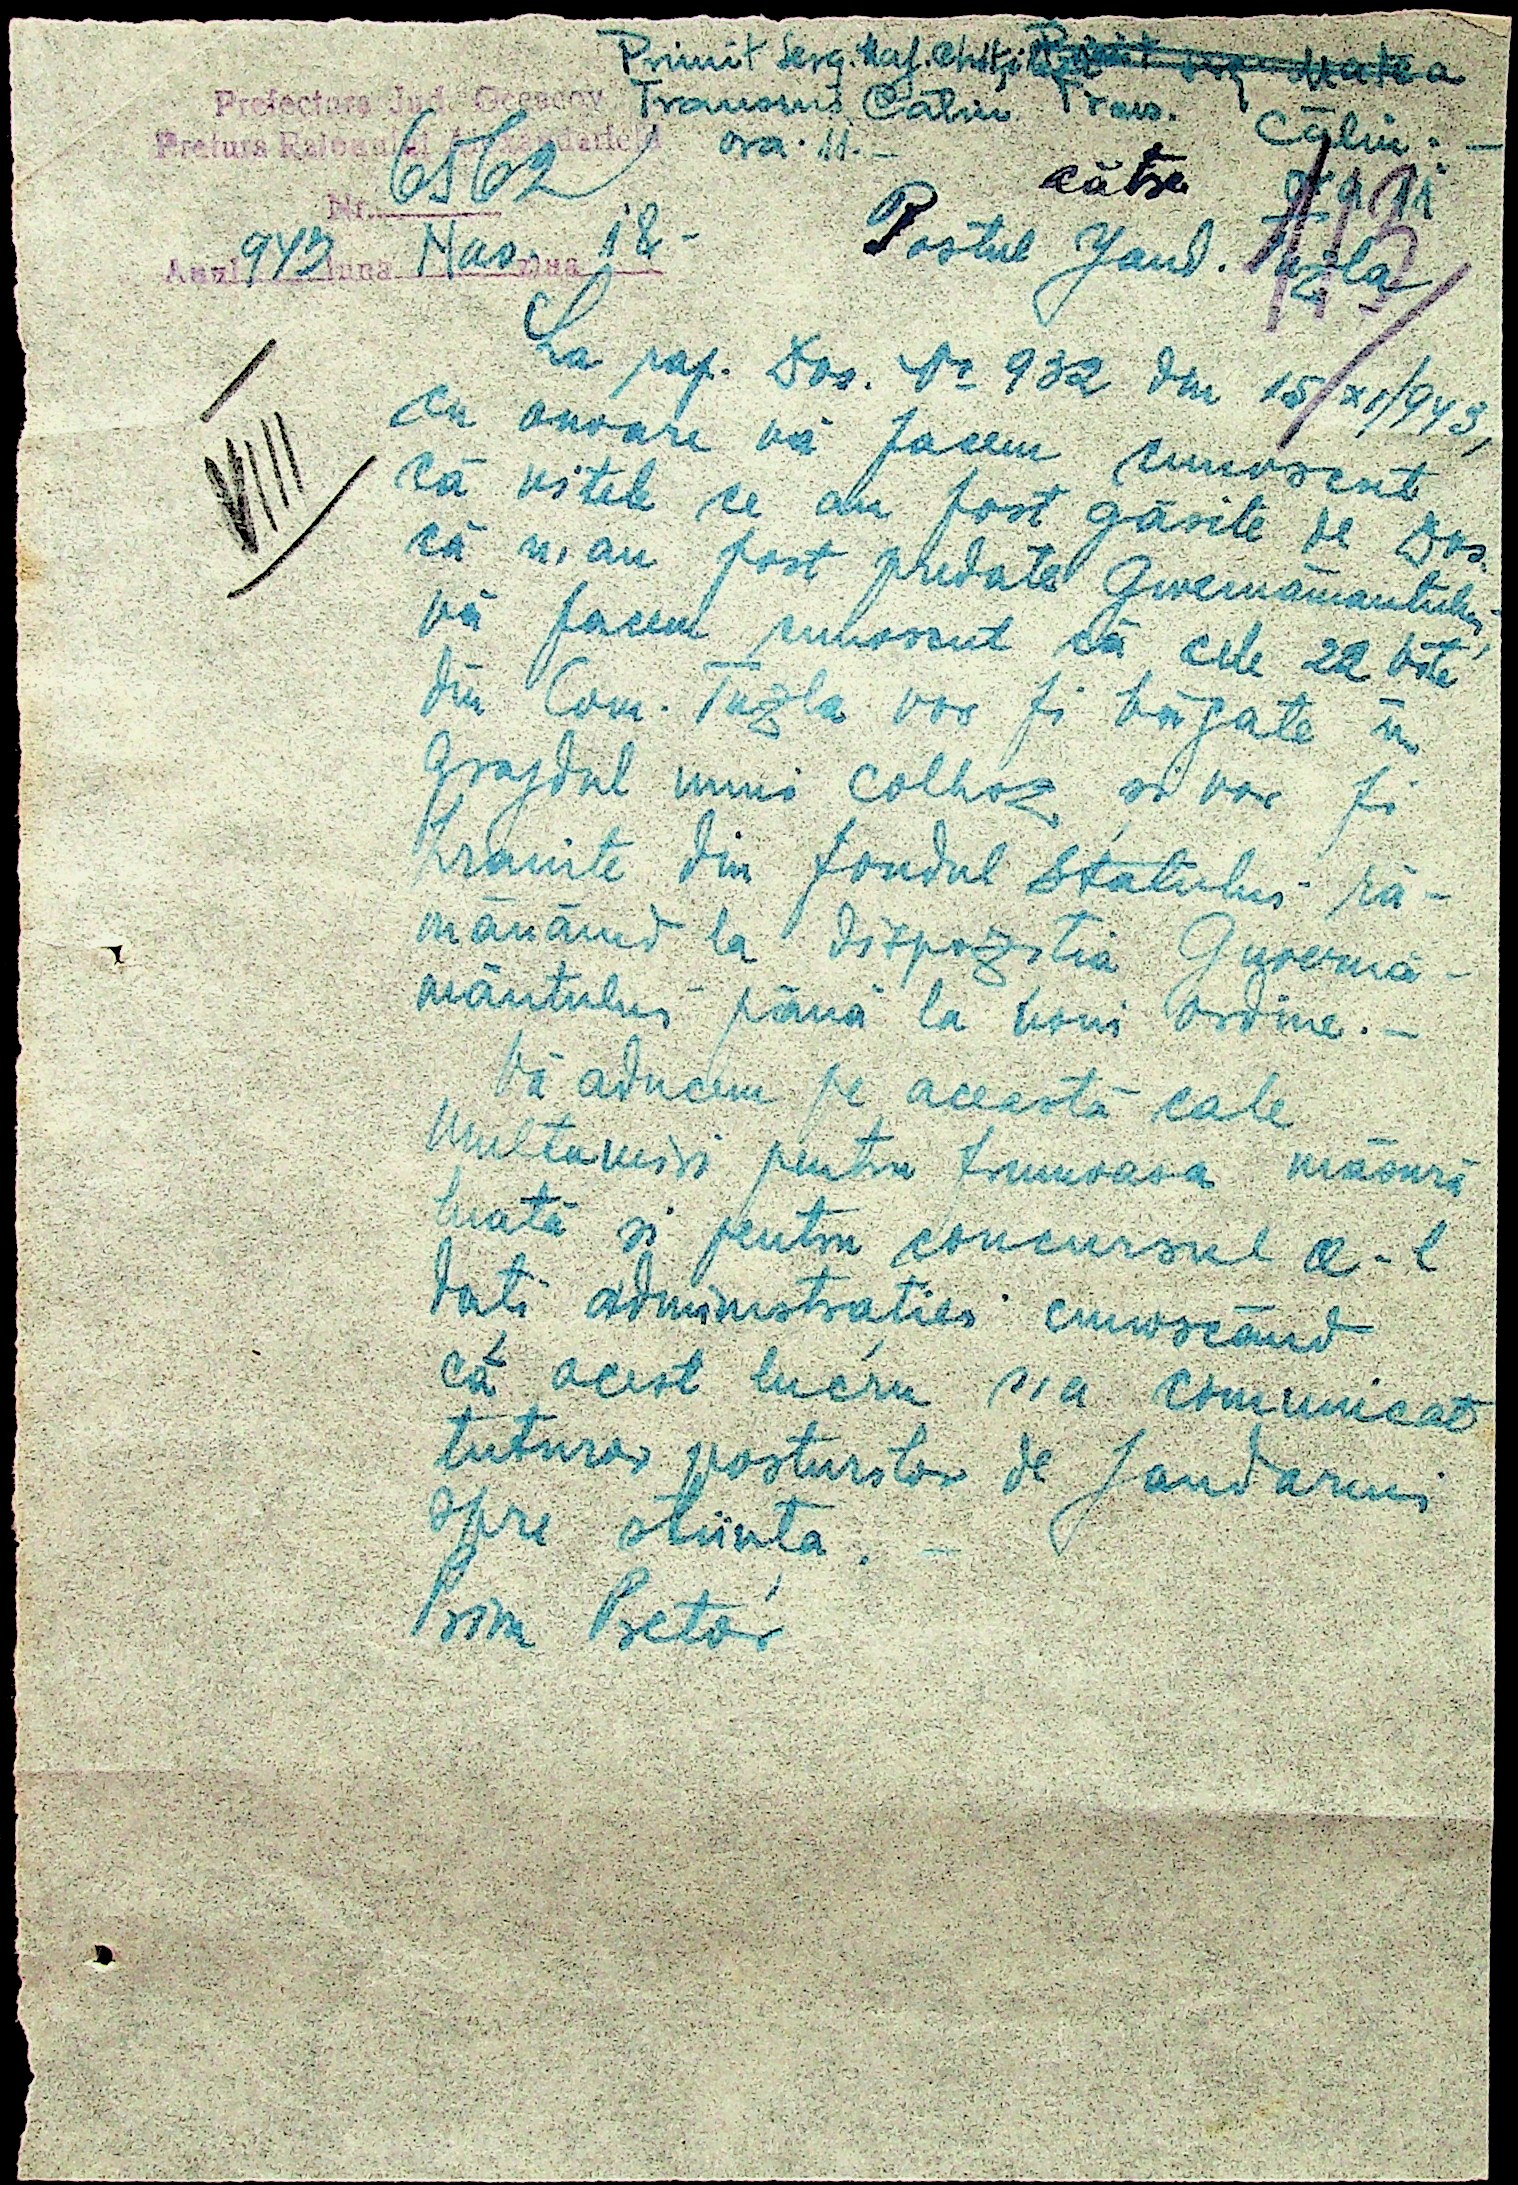 Primit Serg. Maj.
Transmis Călin Trans. Călin. —
ora. 11. — ora 11
Prefectura Jud. Oceacov
Pretura Raionului
Nr. 6562
Anul 943 luna Noe. ziua 18 -
către
Postul Jand. Tuzla
VIII
La rap. Dvs. Nr 932 din 15/XI/943,
cu onoare vă facem cunoscute
că vitele ce au fost găsite de Dvs.
că n, au fost predate Guvernământului,
vă facem cunoscut că cele 22 vite
din Com. Tuzla vor fi băgate în
grajdul unui colhoz și vor fi
hranite din fondul Statului ră-
mânând la dispozitia Guvernă-
mântului până la noui ordine. —
Vă aducem pe această cale
multumiri pentru frumoasa măsură
luată si pentru concursul ce-l
dati administrației cunoscând
că acest lucru s,a comunicat
tuturor posturilor de Jandarmi
spre stiinta. —
Prim Pretor